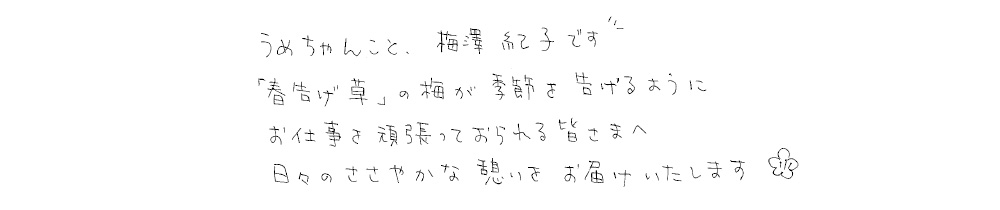 うめちゃんこと、梅澤紀子です
「春告げ草」の梅が季節を告げるように
お仕事を頑張っておられる皆さまへ
日々のささやかな憩いをお届けいたします